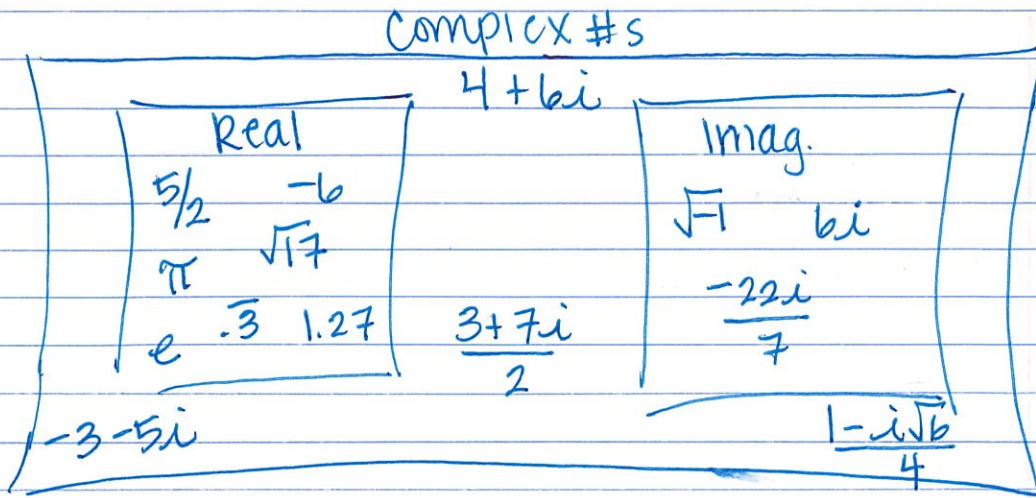 Complex #s
4+6i
Real
5/2 -6
π √17
e .3̅ 1.27
Imag.
√-1 6i
-22i/7
3+7i/2
-3-5i
1-i√6/4